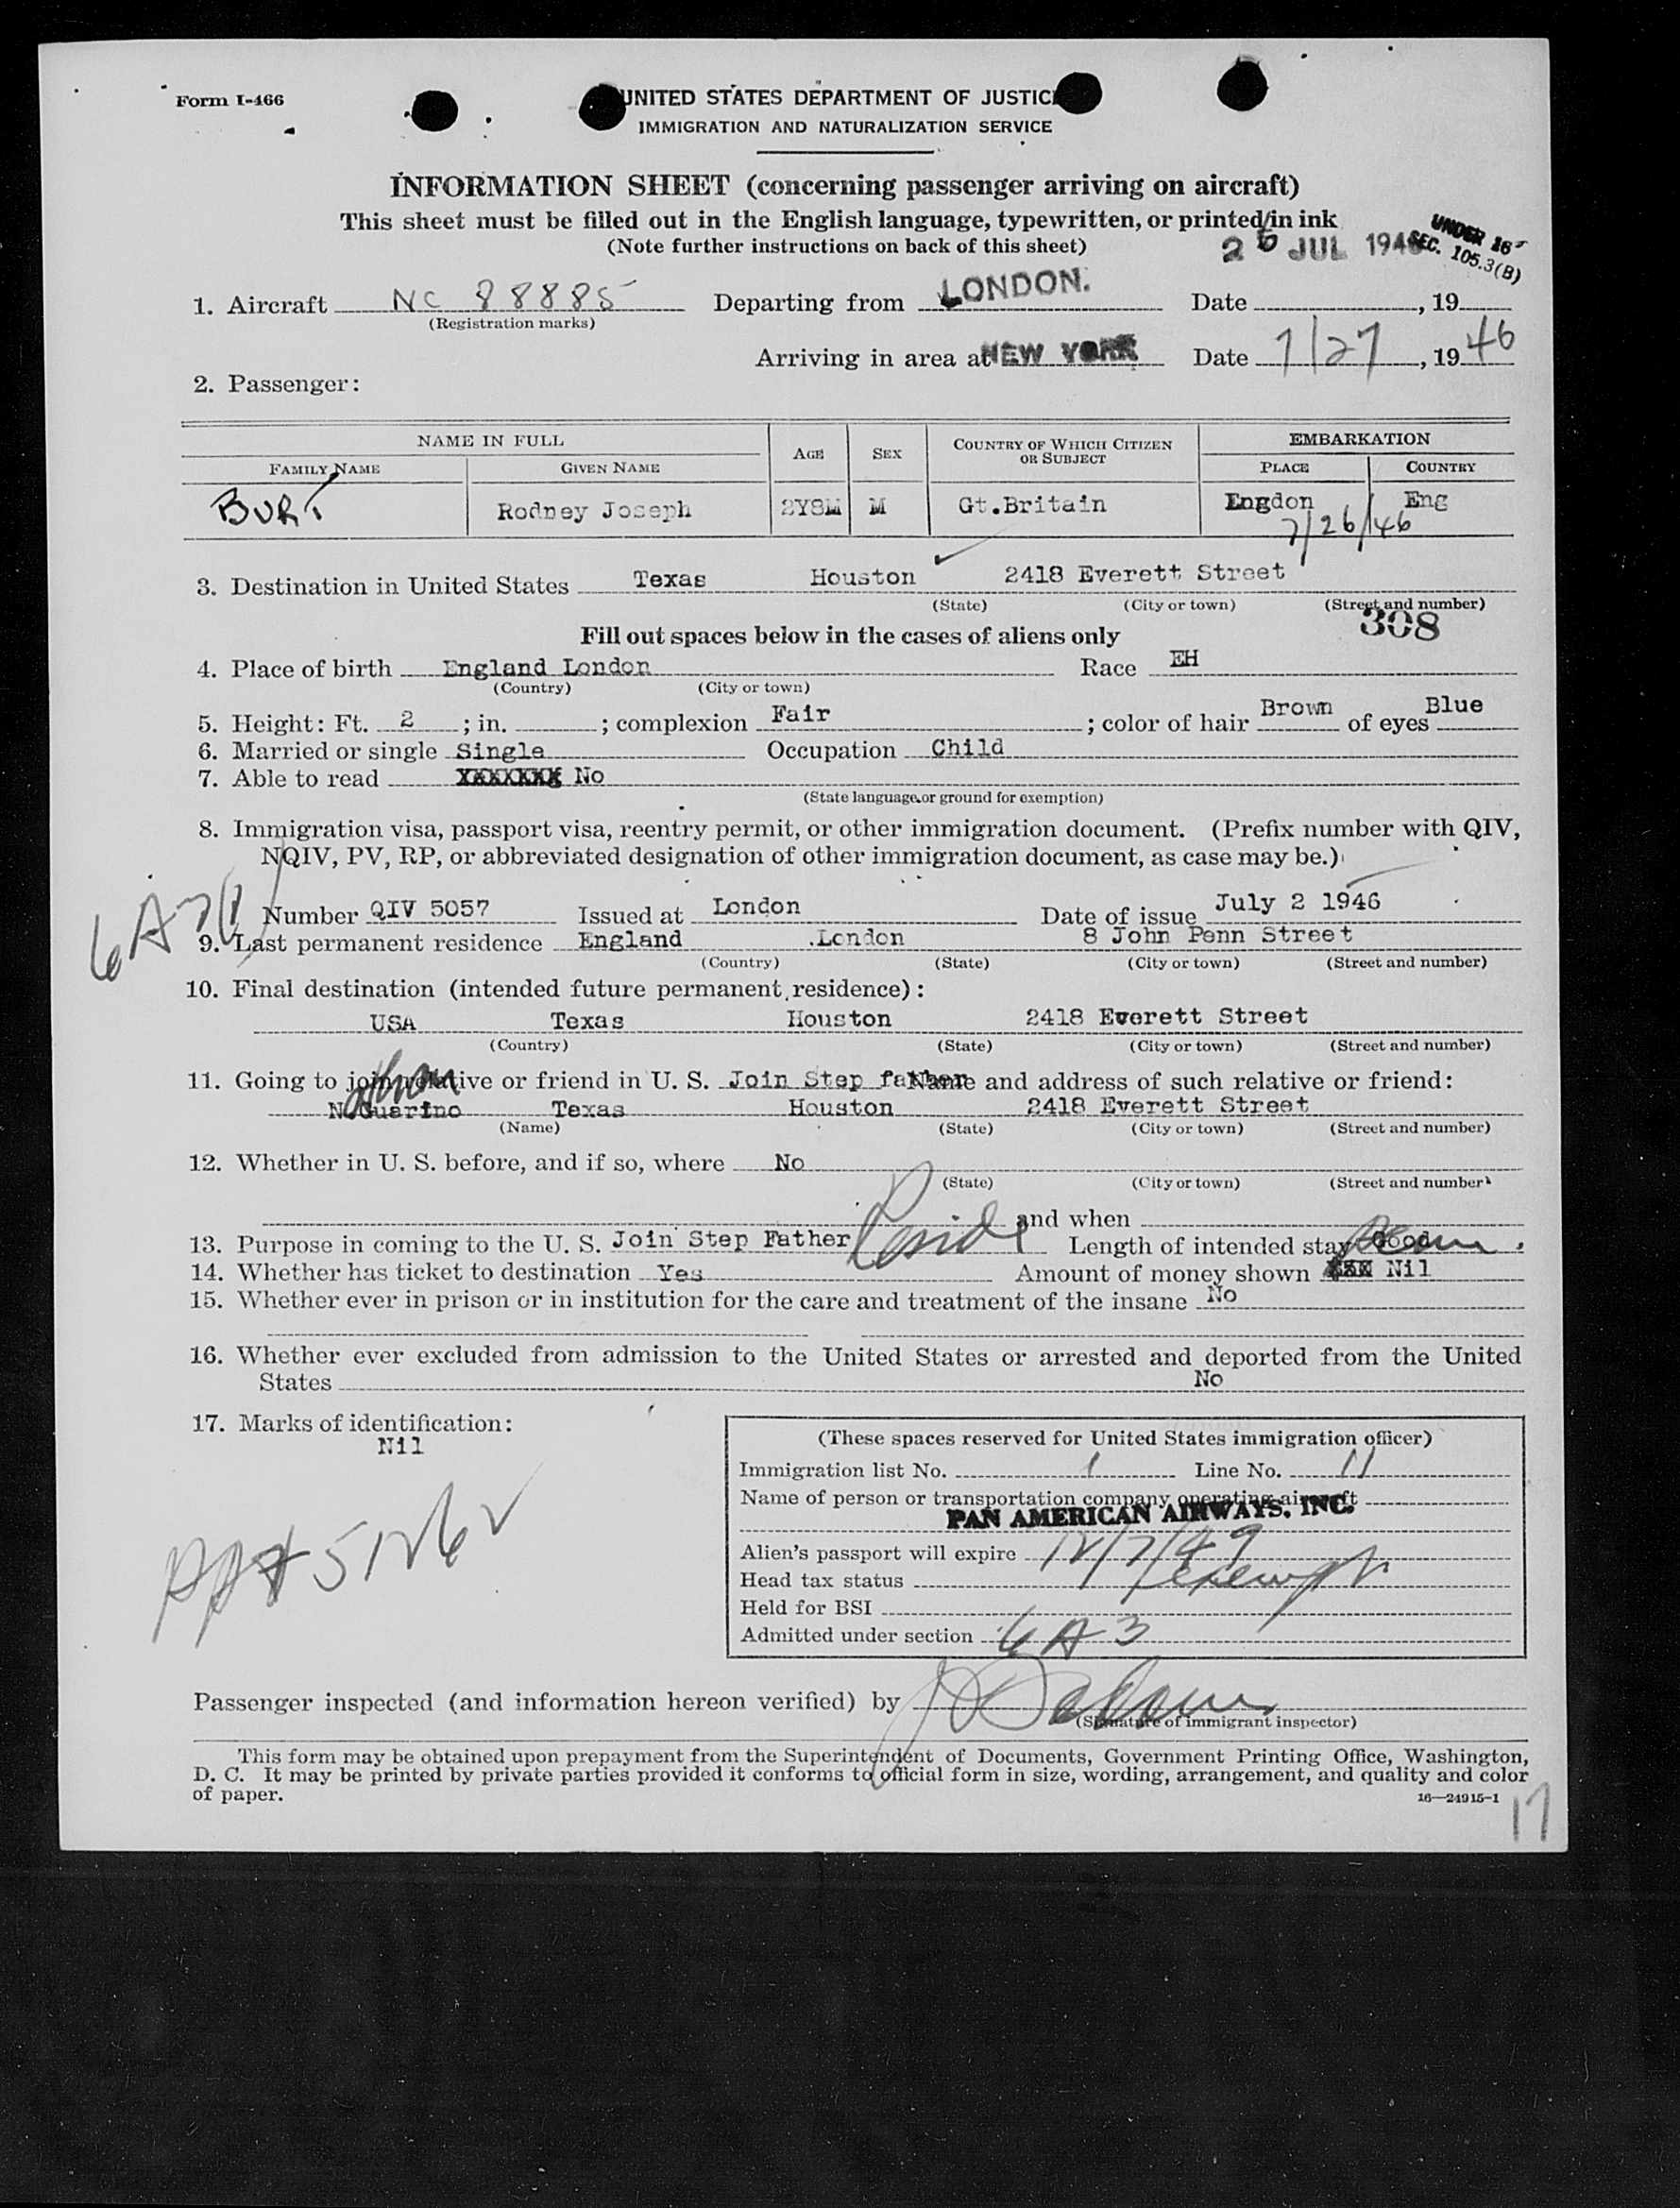 Form I-466
UNITED STATES DEPARTMENT OF JUSTICE
IMMIGRATION AND NATURALIZATION SERVICE
INFORMATION SHEET (concerning passenger arriving on aircraft)
This sheet must be filled out in the English language, typewritten, or printed in ink
(Note further instructions on back of this sheet)
26 JUL 1946
UNDER 16
SEC. 105.3(B)
1. Aircraft NC 88885 Departing from LONDON. Date , 19
(Registration marks)
Arriving in area at NEW YORK Date 7/27, 1946
2. Passenger:
NAME IN FULL AGE SEX COUNTRY OF WHICH CITIZEN OR SUBJECT EMBARKATION
FAMILY NAME GIVEN NAME PLACE COUNTRY
BURT Rodney Joseph 2Y8M M Gt.Britain Lngdon Eng
7/26/46
3. Destination in United States Texas Houston 2418 Everett Street
(State) (City or town) (Street and number)
308
Fill out spaces below in the cases of aliens only
4. Place of birth England London Race EH
(Country) (City or town)
5. Height: Ft. 2 ; in. ; complexion Fair ; color of hair Brown of eyes Blue
6. Married or single Single Occupation Child
7. Able to read XXXXXXX No
(State language or ground for exemption)
8. Immigration visa, passport visa, reentry permit, or other immigration document. (Prefix number with QIV,
NQIV, PV, RP, or abbreviated designation of other immigration document, as case may be.)
Number QIV 5057 Issued at London Date of issue July 2 1946
9. Last permanent residence England London 8 John Penn Street
(Country) (State) (City or town) (Street and number)
10. Final destination (intended future permanent residence):
USA Texas Houston 2418 Everett Street
(Country) (State) (City or town) (Street and number)
11. Going to join relative or friend in U. S. Join Step father Name and address of such relative or friend:
N.Guarino Texas Houston 2418 Everett Street
(Name) (State) (City or town) (Street and number)
12. Whether in U. S. before, and if so, where No
(State) (City or town) (Street and number)
and when
13. Purpose in coming to the U. S. Join Step Father Reside Length of intended stay Good
14. Whether has ticket to destination Yes Amount of money shown Nil
15. Whether ever in prison or in institution for the care and treatment of the insane No
16. Whether ever excluded from admission to the United States or arrested and deported from the United
States No
17. Marks of identification:
Nil
PP# 51262
(These spaces reserved for United States immigration officer)
Immigration list No. 1 Line No. 11
Name of person or transportation company operating aircraft
PAN AMERICAN AIRWAYS, INC.
Alien's passport will expire 12/7/49
Head tax status exempt
Held for BSI
Admitted under section 6A3
Passenger inspected (and information hereon verified) by
(Signature of immigrant inspector)
This form may be obtained upon prepayment from the Superintendent of Documents, Government Printing Office, Washington,
D. C. It may be printed by private parties provided it conforms to official form in size, wording, arrangement, and quality and color
of paper.
16—24915-1
17